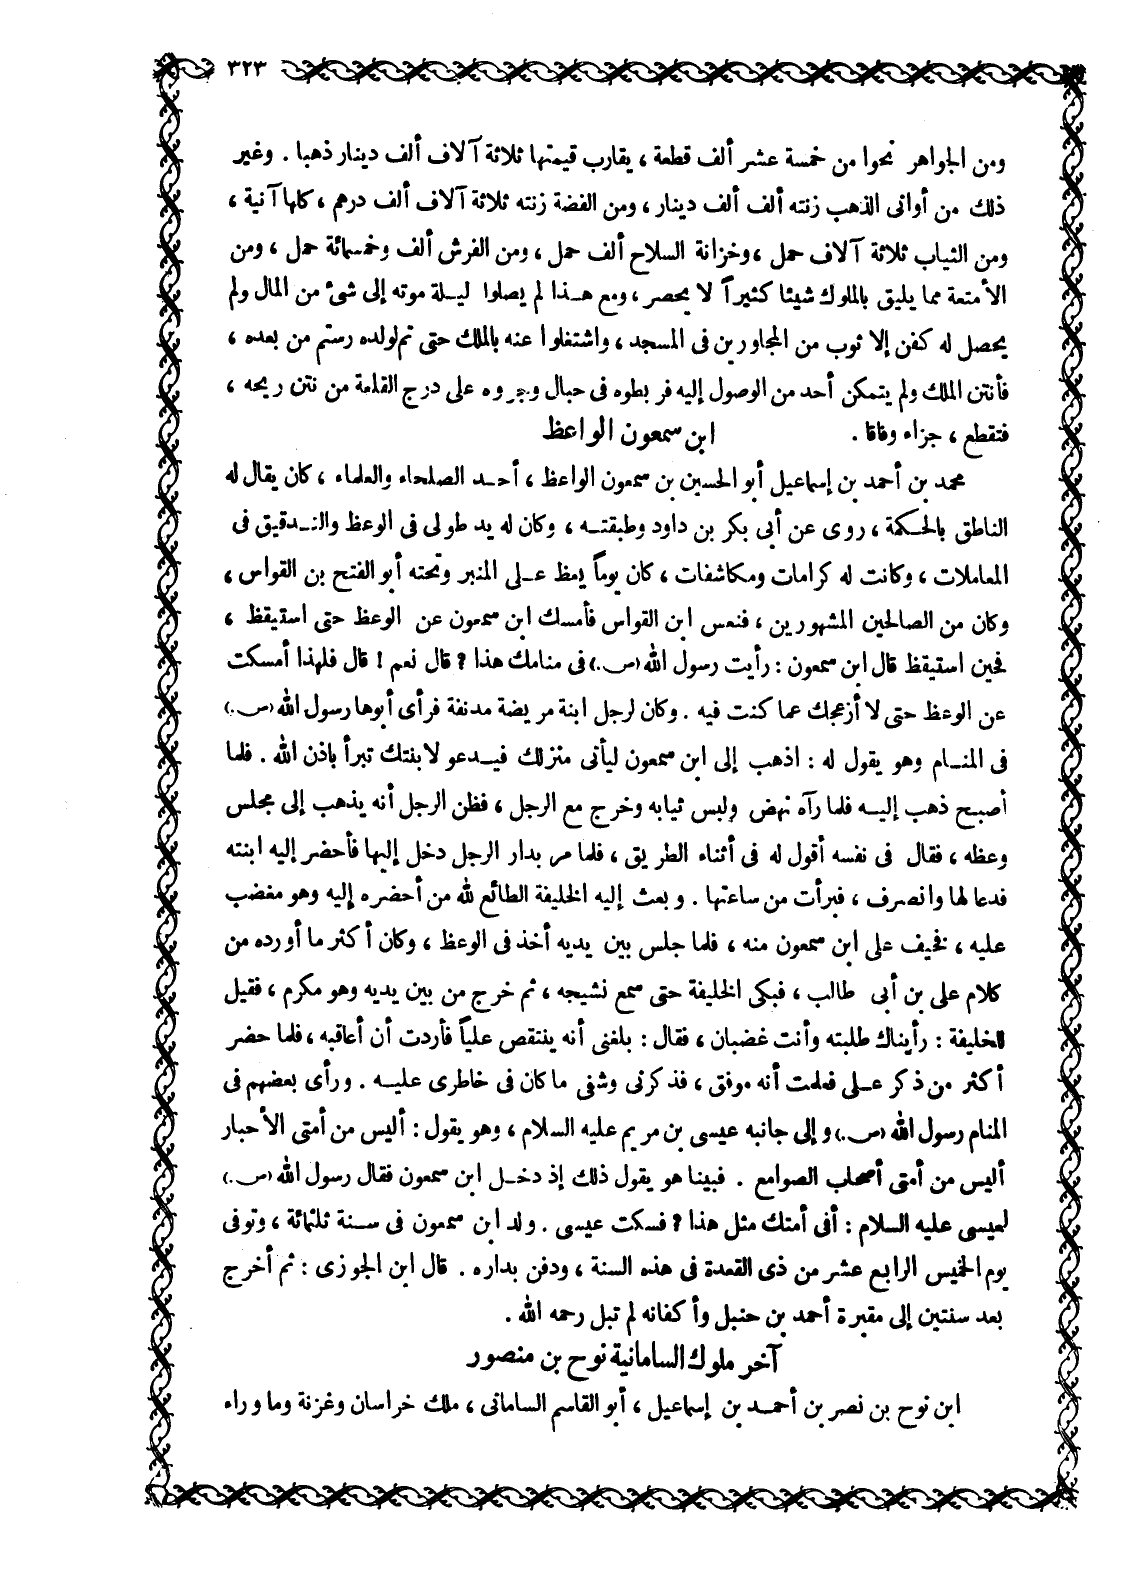 ٣٢٣
ومن الجواهر نحوا من خمسة عشر ألف قطعة ، يقارب قيمتها ثلاثة آلاف ألف دينار ذهبا . وغير
ذلك من أوانى الذهب زنته ألف ألف دينار ، ومن الفضة زنته ثلاثة آلاف ألف درهم ، كلها آنية ،
ومن الثياب ثلاثة آلاف حمل ، وخزانة السلاح ألف حمل ، ومن الفرش ألف وخمسمائة حمل ، ومن
الأمتعة مما يليق بالملوك شيئا كثيراً لا يحصر ، ومع هـذا لم يصلوا ليـلة موته إلى شئ من المال ولم
يحصل له كفن إلا ثوب من المجاورين فى المسجد ، واشتغلوا عنه بالملك حتى تم لولده رستم من بعده ،
فأنتن الملك ولم يتمكن أحد من الوصول إليه فربطوه فى حبال وجروه على درج القلعة من نتن ريحه ،
فتقطع ، جزاء وفاقا . ابن سمعون الواعظ
محمد بن أحمد بن إسماعيل أبو الحسين بن سمعون الواعظ ، أحـد الصلحاء والعلماء ، كان يقال له
الناطق بالحـكمة ، روى عن أبى بكر بن داود وطبقتـه ، وكان له يد طولى فى الوعظ والتـدقيق فى
المعاملات ، وكانت له كرامات ومكاشفات ، كان يوماً يعظ عـلى المنبر وتحته أبو الفتح بن القواس ،
وكان من الصالحين المشهورين ، فنعس ابن القواس فأمسك ابن سمعون عن الوعظ حتى استيقظ ،
فحين استيقظ قال ابن سمعون : رأيت رسول الله (ص.) فى منامك هذا ? قال نعم ! قال فلهذا أمسكت
عن الوعظ حتى لا أزعجك عما كنت فيه . وكان لرجل ابنة مريضة مدنفة فرأى أبوها رسول الله (ص.)
فى المنـام وهو يقول له : اذهب إلى ابن سمعون ليأتى منزلك فيـدعو لابنتك تبرأ باذن الله . فلما
أصبح ذهب إليـه فلما رآه نهض ولبس ثيابه وخرج مع الرجل ، فظن الرجل أنه يذهب إلى مجلس
وعظه ، فقال فى نفسه أقول له فى أثناء الطريق ، فلما مر بدار الرجل دخل إليها فأحضر إليه ابنته
فدعا لها وانصرف ، فبرأت من ساعتها . وبعث إليه الخليفة الطائع لله من أحضره إليه وهو مغضب
عليه ، فخيف على ابن سمعون منه ، فلما جلس بين يديه أخذ فى الوعظ ، وكان أكثر ما أورده من
كلام على بن أبى طالب ، فبكى الخليفة حتى سمع نشيجه ، ثم خرج من بين يديه وهو مكرم ، فقيل
للخليفة : رأيناك طلبته وأنت غضبان ، فقال : بلغنى أنه ينتقص علياً فأردت أن أعاقبه ، فلما حضر
أكثر من ذكر عـلى فعلمت أنه موفق ، فذكرنى وشفى ما كان فى خاطرى عليـه . ورأى بعضهم فى
المنام رسول الله (ص.) وإلى جانبه عيسى بن مريم عليه السلام ، وهو يقول : أليس من أمتى الأحبار
أليس من أمتى أصحاب الصوامع . فبينا هو يقول ذلك إذ دخـل ابن سمعون فقال رسول الله (ص.)
لعيسى عليه السلام : أفى أمتك مثل هذا ? فسكت عيسى . ولد ابن سمعون فى سـنة ثلثمائة ، وتوفى
يوم الخميس الرابع عشر من ذى القعدة فى هذه السنة ، ودفن بداره . قال ابن الجوزى : ثم أخرج
بعد سنتين إلى مقبرة أحمد بن حنبل وأكفانه لم تبل رحمه الله .
آخر ملوك السامانية نوح بن منصور
ابن نوح بن نصر بن أحمـد بن إسماعيل ، أبو القاسم السامانى ، ملك خراسان وغزنة وما وراء